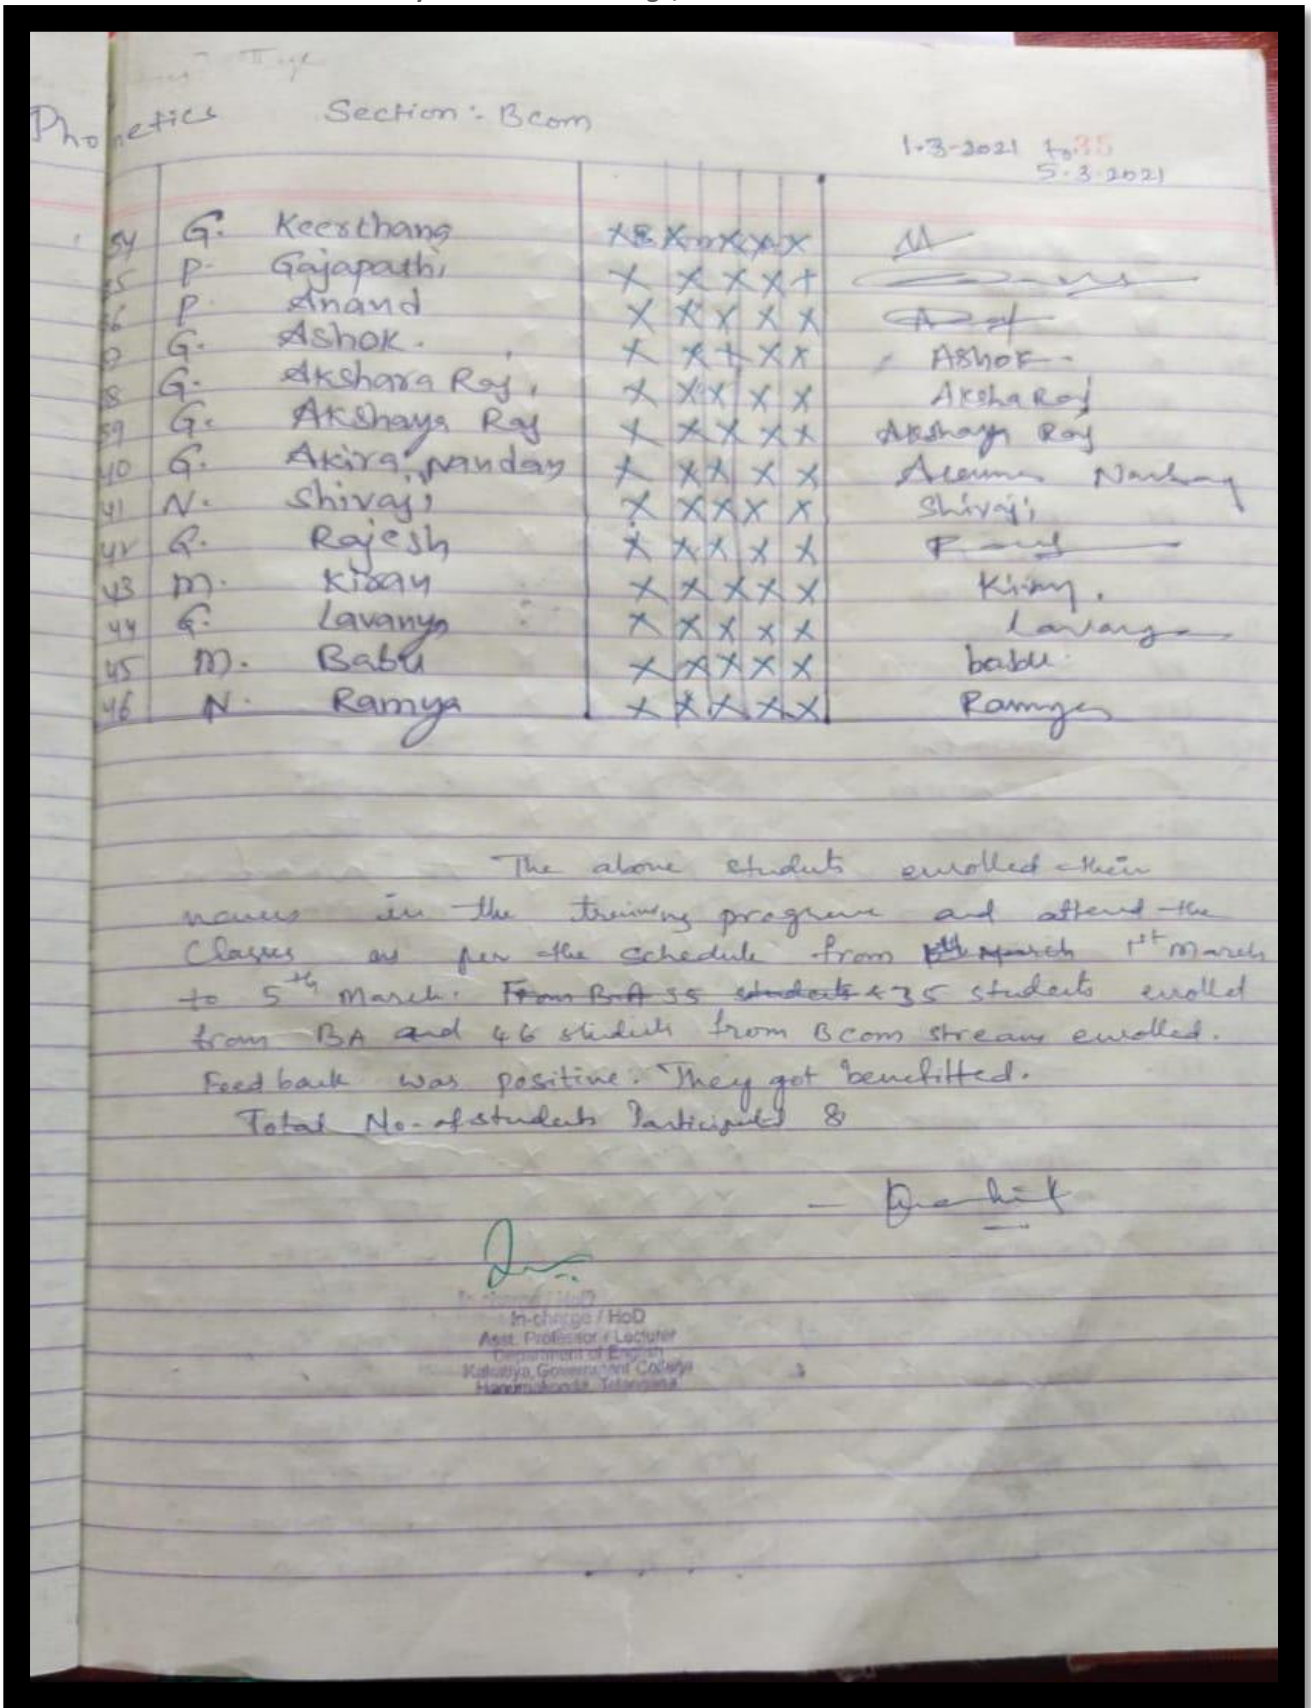 Phonetics Section :- Bcom
1-3-2021 to 35
5-3-2021
34 G. Keerthana x x x x x
35 P. Gajapathi x x x x +
36 P. Anand x x x x x
G. Ashok. x x + x x Ashok.
8 G. Akshara Raj. x x x x x Aksha Raj
39 G. Akshaya Raj x x x x x Akshaya Raj
40 G. Akira Nandan x x x x x
41 N. Shivaji x x x x x Shivaji
42 G. Rajesh x x x x x
43 M. Kiran x x x x x Kiran.
44 G. Lavanya x x x x x Lavanya
45 M. Babu x x x x x babu.
46 N. Ramya x x x x x Ramya
The above students enrolled their
names in the training program and attend the
Classes as per the schedule from 1st March
to 5th March. From B.A 35 students & 35 students enrolled
from BA and 46 students from Bcom stream enrolled.
Feed back was positive. They got benefitted.
Total No. of students Participated 8
In-charge / HoD
In-charge / HoD
Asst. Professor / Lecturer
Department of English
Kakatiya Government College
Hanumakonda, Telangana